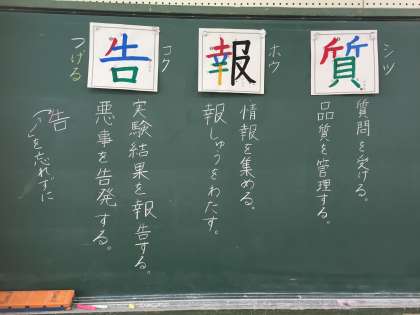 質
シツ
質問を受ける。
品質を管理する。
報
ホウ
情報を集める。
報しゅうをわたす。
告
コク
つげる
実験結果を報告する。
悪事を告発する。
告
「ノ」を忘れずに